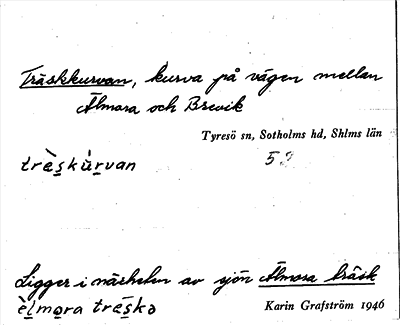 Träskkurvan, kurva på vägen mellan
Älmora och Brevik
Tyresö sn, Sotholms hd, Shlms län
trèskùrvan
Ligger i närheten av sjön Älmora träsk
èlmora trésko
Karin Grafström 1946